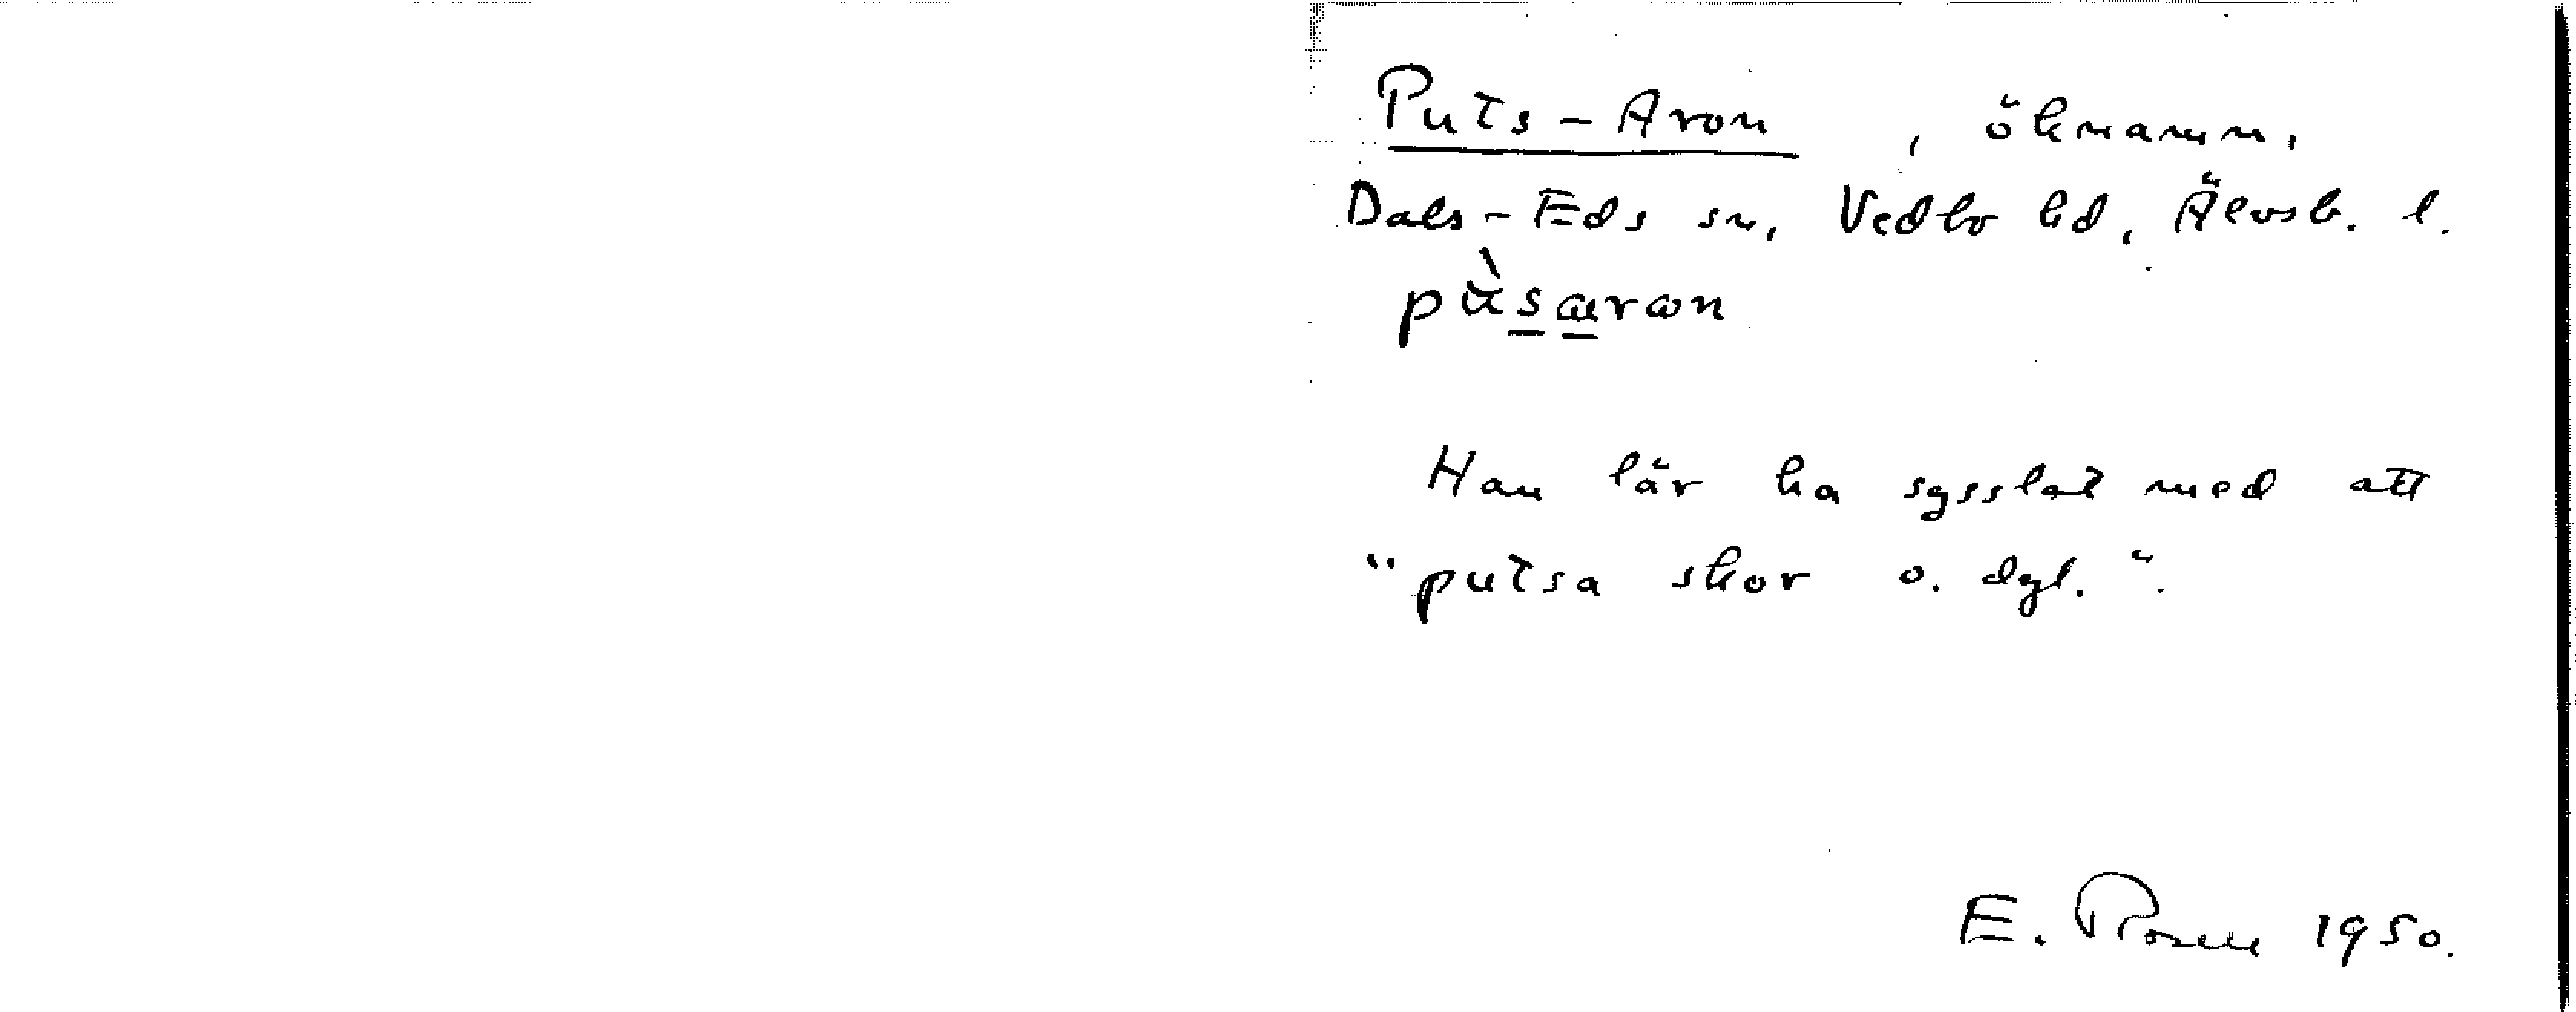 Puts-Aron, öknamn,
Dals-Eds sn, Vedbo hd, Älvsb. l.
pùsaron
Han lär ha sysslat med att
"putsa skor o. dgl.".
E. Rosell 1950.